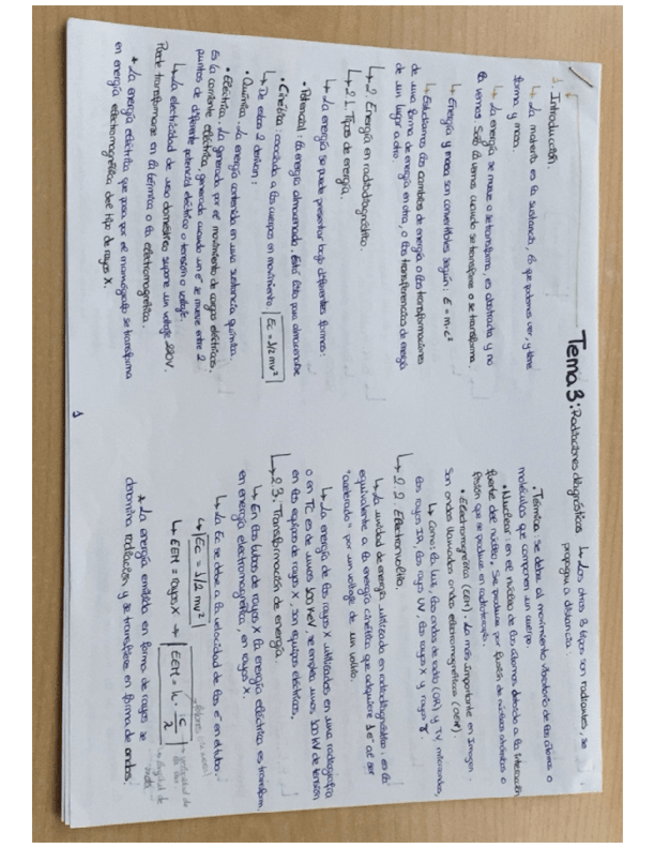 Tema 3: Radiaciones diagnósticas
1. Introducción.
↳ La materia es la sustancia, es que podemos ver, y tiene
forma y masa.
↳ La energía se mueve o se transforma, es abstracta y no
la vemos. Solo la vemos cuando se transfiere o se transforma.
↳ Energía y masa son convertibles según: E = m·c²
↳ Estudiamos los cambios de energía o las transformaciones
de una forma de energía en otra, o las transferencias de energía
de un lugar a otro.
↳ 2. Energía en radiodiagnóstico.
↳ 2.1. Tipos de energía.
↳ La energía se puede presentar bajo diferentes formas:
• Potencial: la energía almacenada. Está lista para almacenarse
• Cinética: asociada a los cuerpos en movimiento. Ec = 1/2 mv²
↳ De estas 2 derivan:
• Química. La energía contenida en una sustancia química.
• Eléctrica. La generada por el movimiento de cargas eléctricas.
Es la corriente eléctrica, generada cuando un e⁻ se mueve entre 2
puntos de diferente potencial eléctrico o tensión o voltaje.
↳ La electricidad de uso doméstico supone un voltaje 220V.
Puede transformarse en la térmica o la electromagnética.
* La energía eléctrica que pasa por el mamógrafo se transforma
en energía electromagnética del tipo de rayos X.
1
↳ Los otros 3 tipos son radiantes, se
propaga a distancia.
• Térmica. Se debe al movimiento vibratorio de los átomos o
moléculas que componen un cuerpo.
• Nuclear: en el núcleo de los átomos debido a la interacción
fuerte del núcleo. Se produce por fusión de núcleos atómicos o
fisión que se produce en radioterapia.
• Electromagnética (EEM). La más importante en Imagen.
Son ondas llamadas ondas electromagnéticas (OEM).
↳ Como: la luz, las ondas de radio (OR) y TV, microondas,
los rayos IR, los rayos UV, los rayos X y rayos γ.
↳ 2.2. Electronvoltio.
↳ La unidad de energía utilizada en radiodiagnóstico es la
equivalente a la energía cinética que adquiere 1 e⁻ al ser
"acelerado" por un voltaje de un voltio.
↳ La energía de los rayos X utilizados en una radiografía
o en TC es de unos 100 KeV se emplea unos 100 kV de tensión
en los equipos de rayos X, son equipos eléctricos.
↳ 2.3. Transformación de energía.
↳ En los tubos de rayos X la energía eléctrica es transform.
en energía electromagnética, en rayos X.
↳ La Ec se debe a la velocidad de los e⁻ en el tubo.
↳ Ec = 1/2 mv²
↳ EEM = rayos X → EEM = h · c/λ
* La energía emitida en forma de rayos se
denomina radiación y se transfiere en forma de ondas.